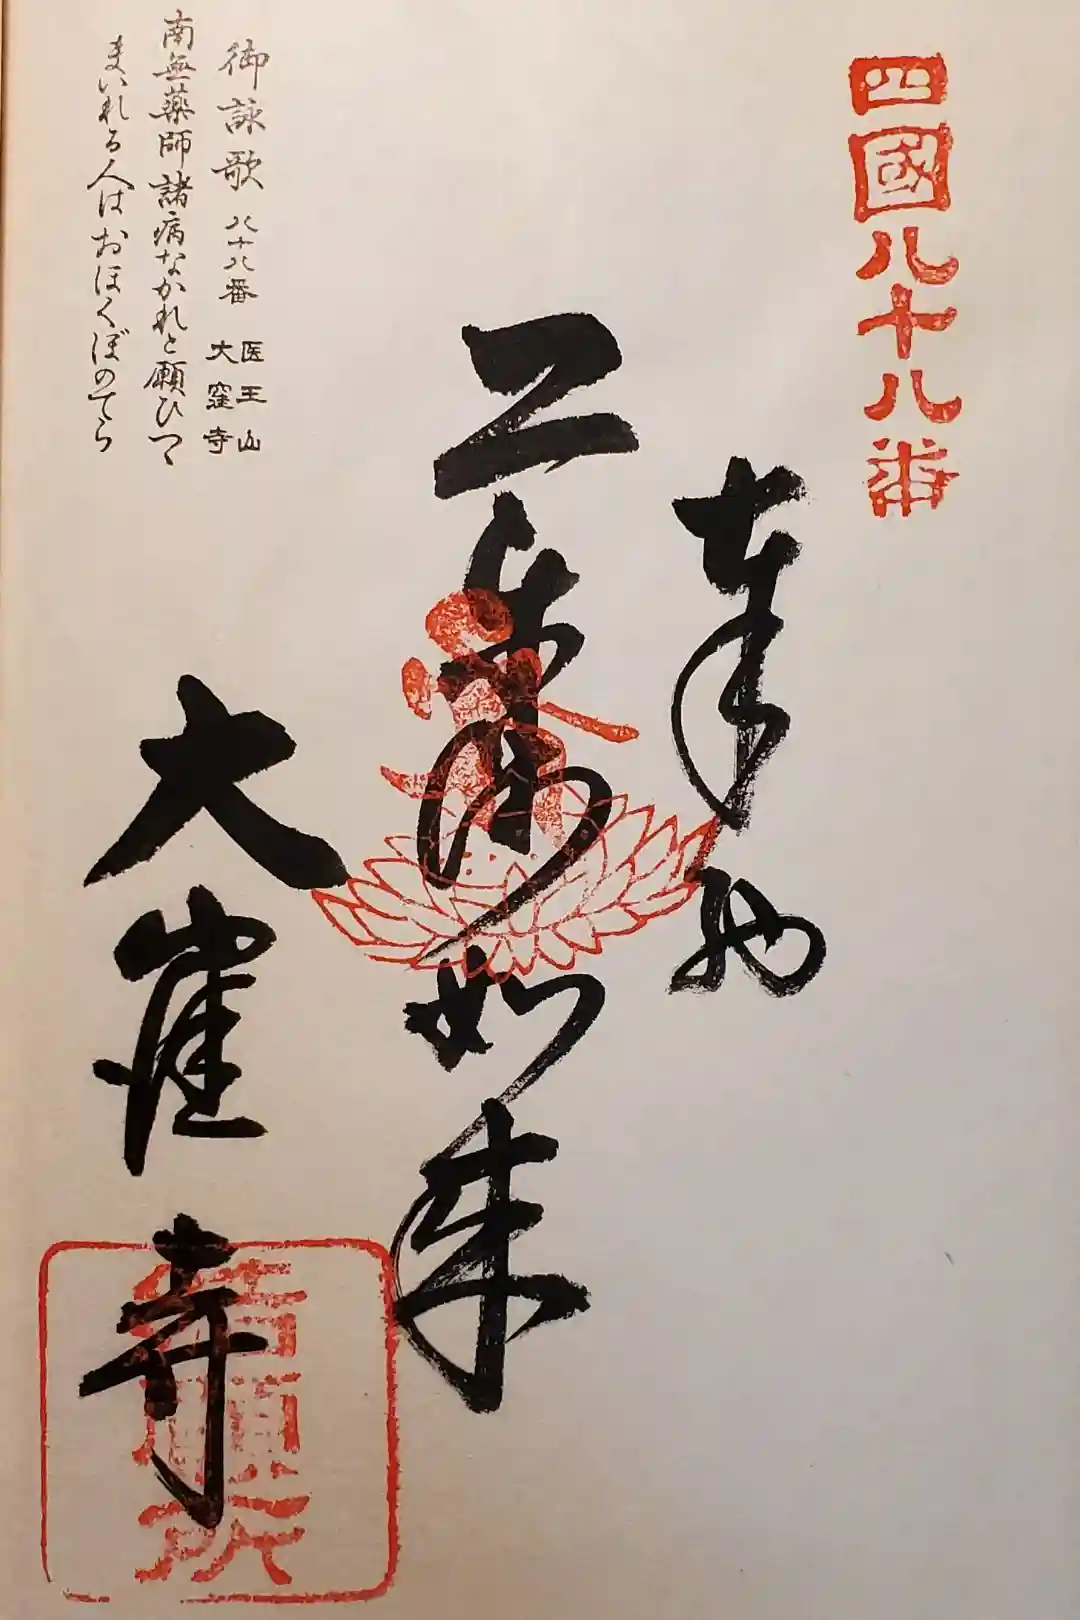 四國八十八番
奉納
如来
大窪寺
結願所
御詠歌 八十八番 医王山 大窪寺
南無薬師諸病なかれと願ひつゝ
まいれる人はおほくぼのてら